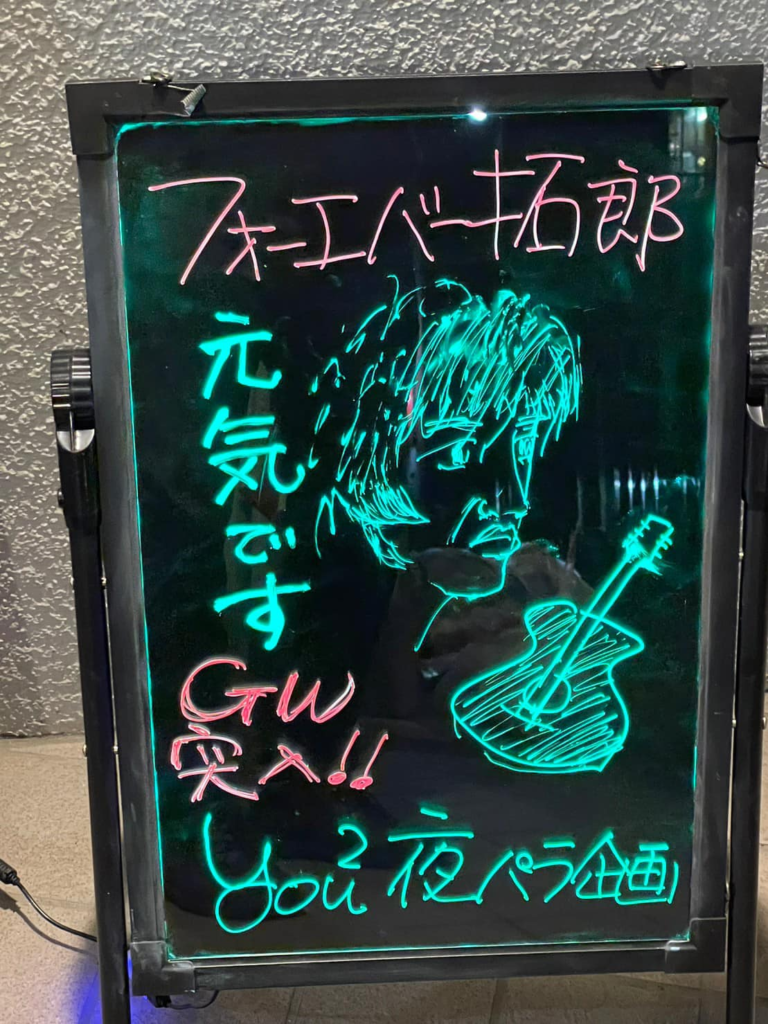 フォーエバー拓郎
元気です
GW
突入!!
you²夜パラ企画